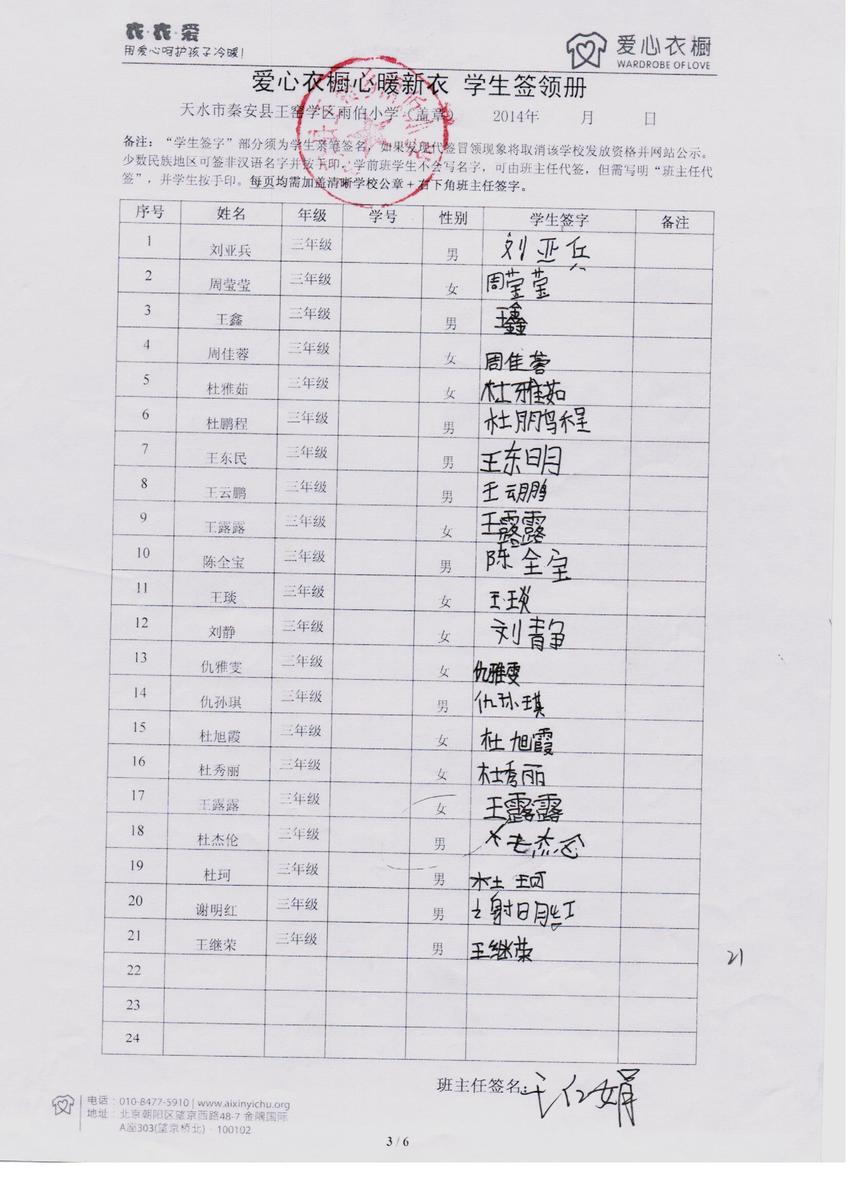 衣·衣·爱
用爱心呵护孩子冷暖!
爱心衣橱
WARDROBE OF LOVE
爱心衣橱心暖新衣 学生签领册
天水市秦安县王窑学区雨伯小学(盖章) 2014年 月 日
备注:“学生签字”部分须为学生亲笔签名,如果发现代签冒领现象将取消该学校发放资格并网站公示。
少数民族地区可签非汉语名字并按手印。学前班学生不会写名字,可由班主任代签,但需写明“班主任代
签”,并学生按手印。每页均需加盖清晰学校公章+右下角班主任签字。
序号 姓名 年级 学号 性别 学生签字 备注
1 刘亚兵 三年级 男 刘亚兵
2 周莹莹 三年级 女 周莹莹
3 王鑫 三年级 男 王鑫
4 周佳蓉 三年级 女 周佳蓉
5 杜雅茹 三年级 女 杜雅茹
6 杜鹏程 三年级 男 杜鹏程
7 王东民 三年级 男 王东明
8 王云鹏 三年级 男 王云鹏
9 王露露 三年级 女 王露露
10 陈全宝 三年级 男 陈全宝
11 王琰 三年级 女 王琰
12 刘静 三年级 女 刘静
13 仇雅雯 三年级 女 仇雅雯
14 仇孙琪 三年级 男 仇孙琪
15 杜旭霞 三年级 女 杜旭霞
16 杜秀丽 三年级 女 杜秀丽
17 王露露 三年级 女 王露露
18 杜杰伦 三年级 男 杜杰伦
19 杜珂 三年级 男 杜珂
20 谢明红 三年级 男
21 王继荣 三年级 男 王继荣
21
22
23
24
班主任签名:王仁娟
电话:010-8477-5910 | www.aixinyichu.org
地址:北京朝阳区望京西路48-7 金隅国际
A座303(望京桥北)· 100102
3 / 6